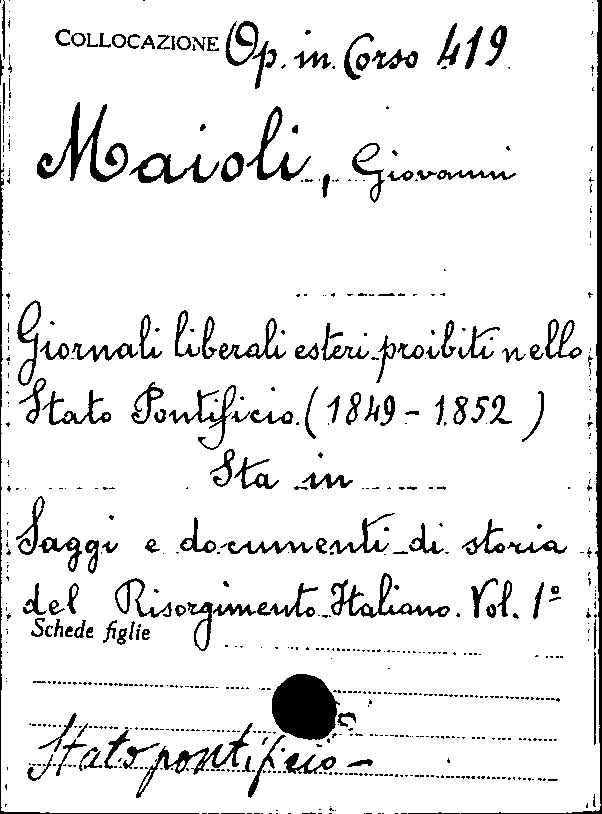 COLLOCAZIONE Op. in Corso 419
Maioli, Giovanni
Giornali liberali esteri proibiti nello
Stato Pontificio. (1849 - 1852)
Sta in
Saggi e documenti di storia
del Risorgimento Italiano. Vol. 1º
Schede figlie
Stato pontificio -